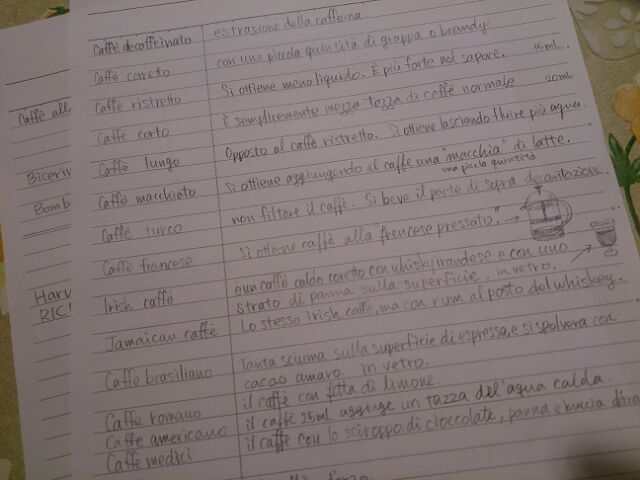 Caffè decaffeinato estrazione della caffeina
Caffè coreto con una piccola quintità di grappa o brandy
Caffè ristretto Si ottiene meno liquido. È più forte nel sapore. 15ml.
Caffè corto È semplicemente mezza tazza di caffè normale 20ml
Caffè lungo Opposto al caffè ristretto. Si ottiene lasciando fluire più aqua.
Caffè macchiato Si ottiene aggiungendo al caffe una "macchia" di latte.
una piccola quintità
Caffè turco non filtore il caffè. Si beve il parte di sopra decantazione.
Caffè francese Si ottiene caffè alla francese pressato."
Irish caffè è un caffè caldo coreto con whisky irlandese e con uno
strato di panna sulla superficie, in vetro.
Jamaican caffè Lo stesso Irish caffè, ma con rum al posto del whiskey.
Caffè brasiliano Tanta sciuma sulla superficie di espresso, e si spolvera con
cacao amaro. in vetro.
Caffè romano il caffè con fetta di limone.
Caffe americano il caffè 25ml aggiuge un tazza del'aqua calda.
Caffe medici il caffè con lo sciroppo di cioccolate, panna e buccia d'ara
Caffè all
Biceri
Bomb
Harv
RIC